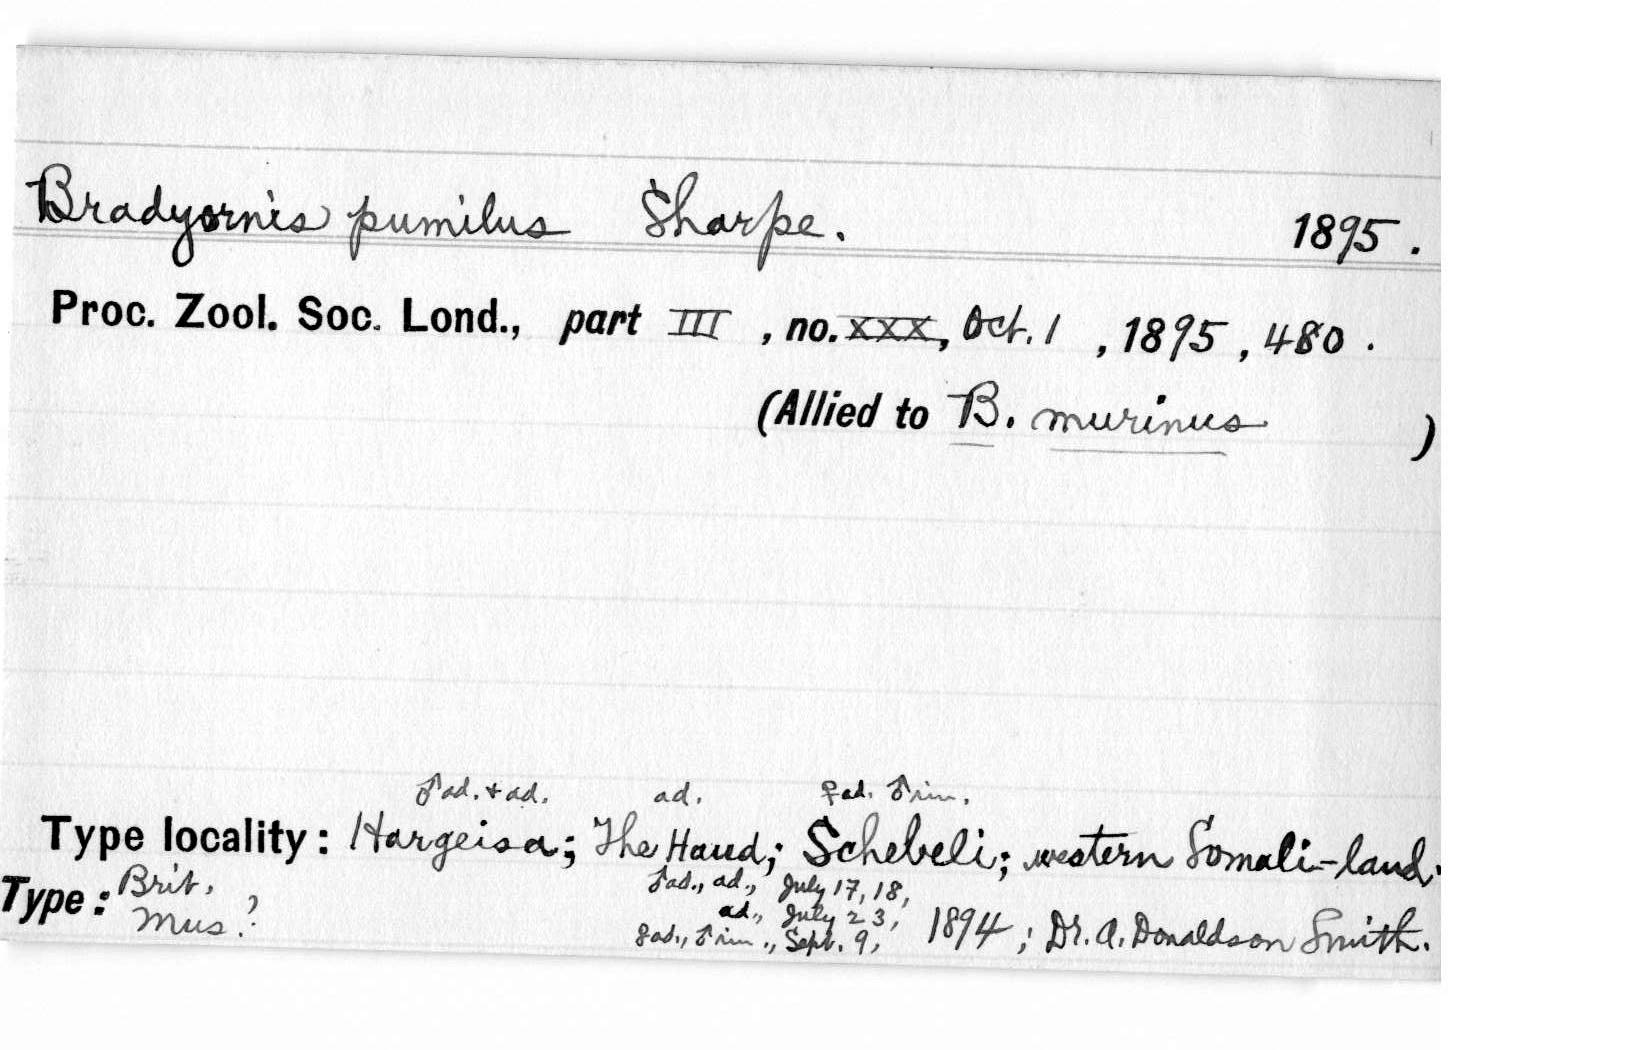 Bradyornis pumilus Sharpe. 1895.
Proc. Zool. Soc. Lond., part III, no. XXX, Oct. 1, 1895, 480.
(Allied to B. murinus)
♂ad. + ad. ad. ♀ad. ♂im.
Type locality: Hargeisa; The Haud; Schebeli; western Somali-land.
Type: Brit. Mus.?
♂ad., ad., July 17, 18,
ad., July 23,
♀ad., ♂im., Sept. 9, 1894; Dr. A. Donaldson Smith.